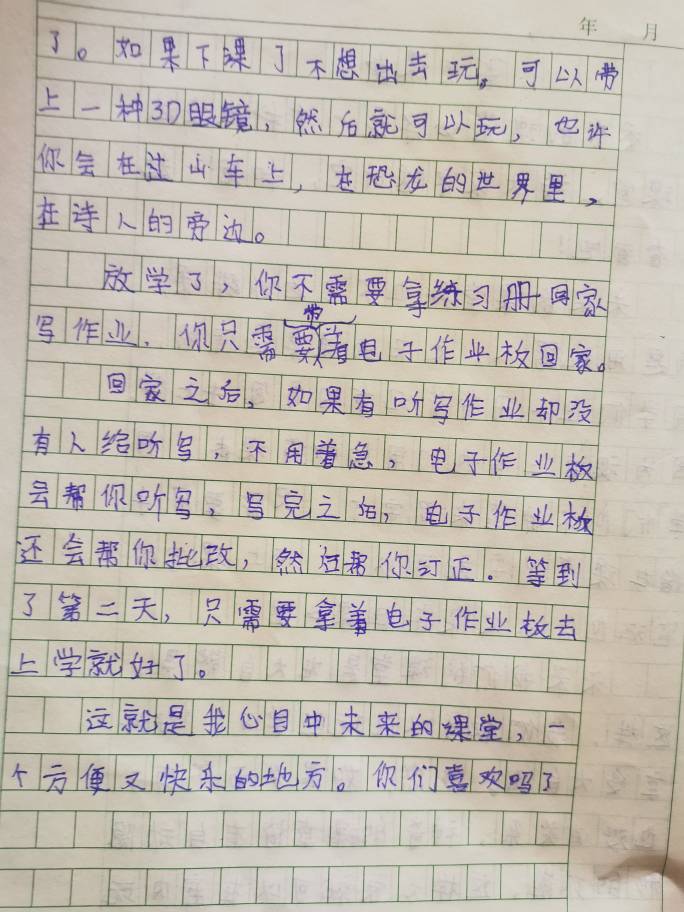 年 月
了。如果下课了不想出去玩。可以带
上一种3D眼镜，然后就可以玩，也许
你会在过山车上，在恐龙的世界里，
在诗人的旁边。
放学了，你不需要拿练习册回家
写作业．你只需要带着电子作业板回家。
回家之后，如果有听写作业却没
有人给听写，不用着急，电子作业板
会帮你听写，写完之后，电子作业板
还会帮你批改，然后帮你订正．等到
了第二天，只需要拿着电子作业板去
上学就好了。
这就是我心目中未来的课堂，一
个方便又快乐的地方。你们喜欢吗？